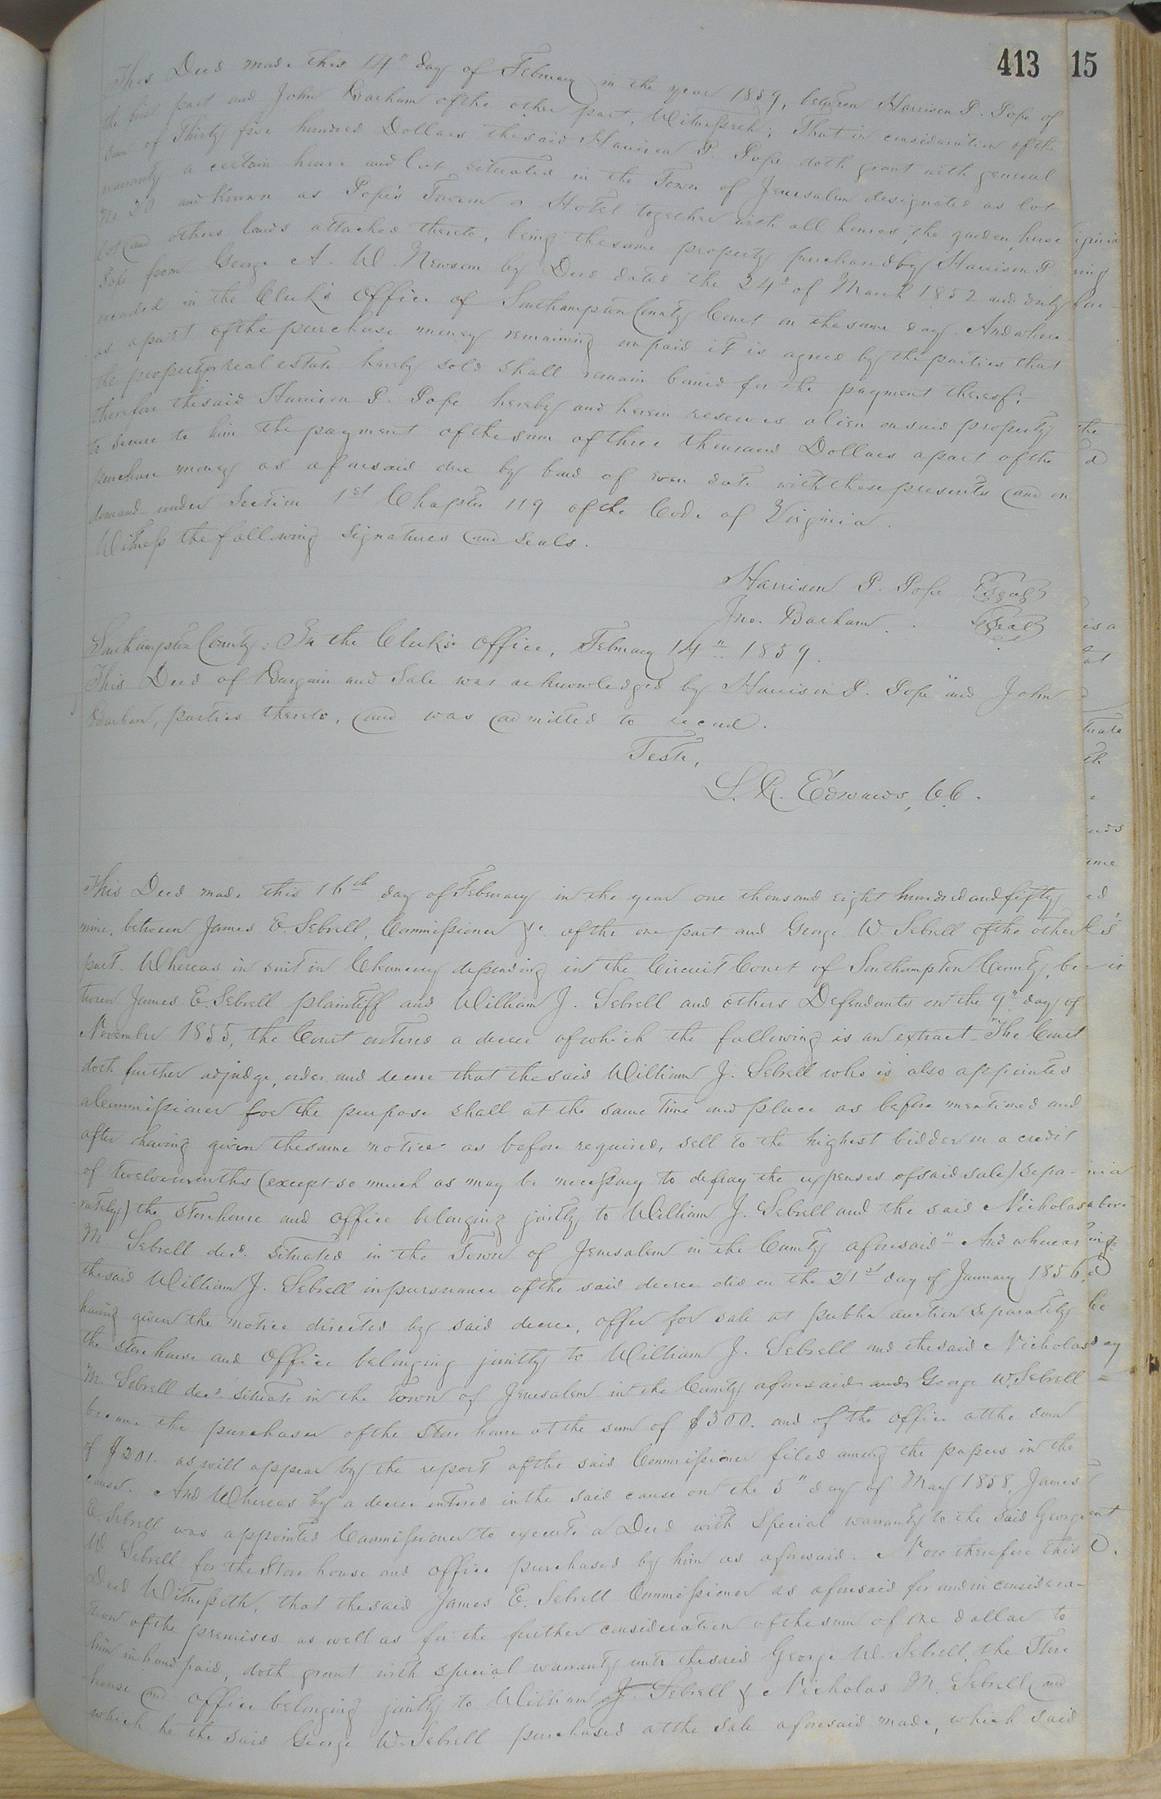 413 15
This Deed made this 14th day of February in the year 1859, between Harrison P. Pope of
the first part and John Barham of the other part, Witnesseth; That in consideration of the
sum of Thirty five hundred Dollars the said Harrison P. Pope doth grant with general
warranty a certain house and lot situated in the Town of Jerusalem designated as lot
No 20 and known as Pope's Tavern or Hotel together with all houses, the garden, horse
lot and others lands attached thereto, being the same property purchased by Harrison P.
Pope from George A. W. Newsom by Deed dated the 24th of March 1852 and duly
recorded in the Clerk's Office of Southampton County Court on the same day. And where-
as a part of the purchase money remaining unpaid it is agreed by the parties that
the property or real estate hereby sold shall remain bound for the payment thereof:
therefore the said Harrison P. Pope hereby and herein reserves a lien on said property
to secure to him the payment of the sum of three thousand Dollars a part of the
purchase money as aforesaid due by bond of even date with these presents and on
demand under Section 1st Chapter 119 of the Code of Virginia.
Witness the following signatures and seals.
Harrison P. Pope Seal
Jno. Barham Seal
Southampton County: In the Clerk's Office, February 14th 1859.
This Deed of Bargain and Sale was acknowledged by Harrison P. Pope and John
Barham, parties thereto, and was admitted to record.
Teste,
L. R. Edwards, C.C.
This Deed made this 16th day of February in the year one thousand eight hundred and fifty
nine, between James E. Sebrell, Commissioner &c of the one part and George W Sebrell of the other
part. Whereas in suit in Chancery depending in the Circuit Court of Southampton County, be-
tween James E. Sebrell plaintiff and William J. Sebrell and others Defendants on the 9th day of
November 1855, the Court entered a decree of which the following is an extract "The Court
doth further adjudge, order and decree that the said William J. Sebrell who is also appointed
a Commissioner for the purpose shall at the same time and place as before mentioned and
after having given the same notice as before required, sell to the highest bidder on a credit
of twelve months (except so much as may be necessary to defray the expenses of said sale) (Sepa-
rately) the Storehouse and office belonging jointly to William J. Sebrell and the said Nicholas
M Sebrell decd. situated in the Town of Jerusalem in the County aforesaid" And whereas
the said William J. Sebrell in pursuance of the said decree did on the 21st day of January 1856,
having given the notice directed by said decree, offer for sale at public auction separately
the store house and office belonging jointly to William J. Sebrell and the said Nicholas
M. Sebrell decd. situate in the Town of Jerusalem in the County aforesaid and George W. Sebrell
became the purchaser of the Store house at the sum of $300. and of the office at the sum
of $201. as will appear by the report of the said Commissioner filed among the papers in the
cause. And Whereas by a decree entered in the said cause on the 5" day of May 1858, James
E. Sebrell was appointed Commissioner to execute a Deed with Special warranty to the said George
W Sebrell for the Store house and office purchased by him as aforesaid. Now therefore this
Deed Witnesseth, that the said James E. Sebrell Commissioner as aforesaid for and in considera-
tion of the premises as well as for the further consideration of the sum of one dollar to
him in hand paid, doth grant with special warranty unto the said George W. Sebrell, the Store
house and office belonging jointly to William J. Sebrell & Nicholas M. Sebrell and
which he the said George W. Sebrell purchased at the sale aforesaid made, which said